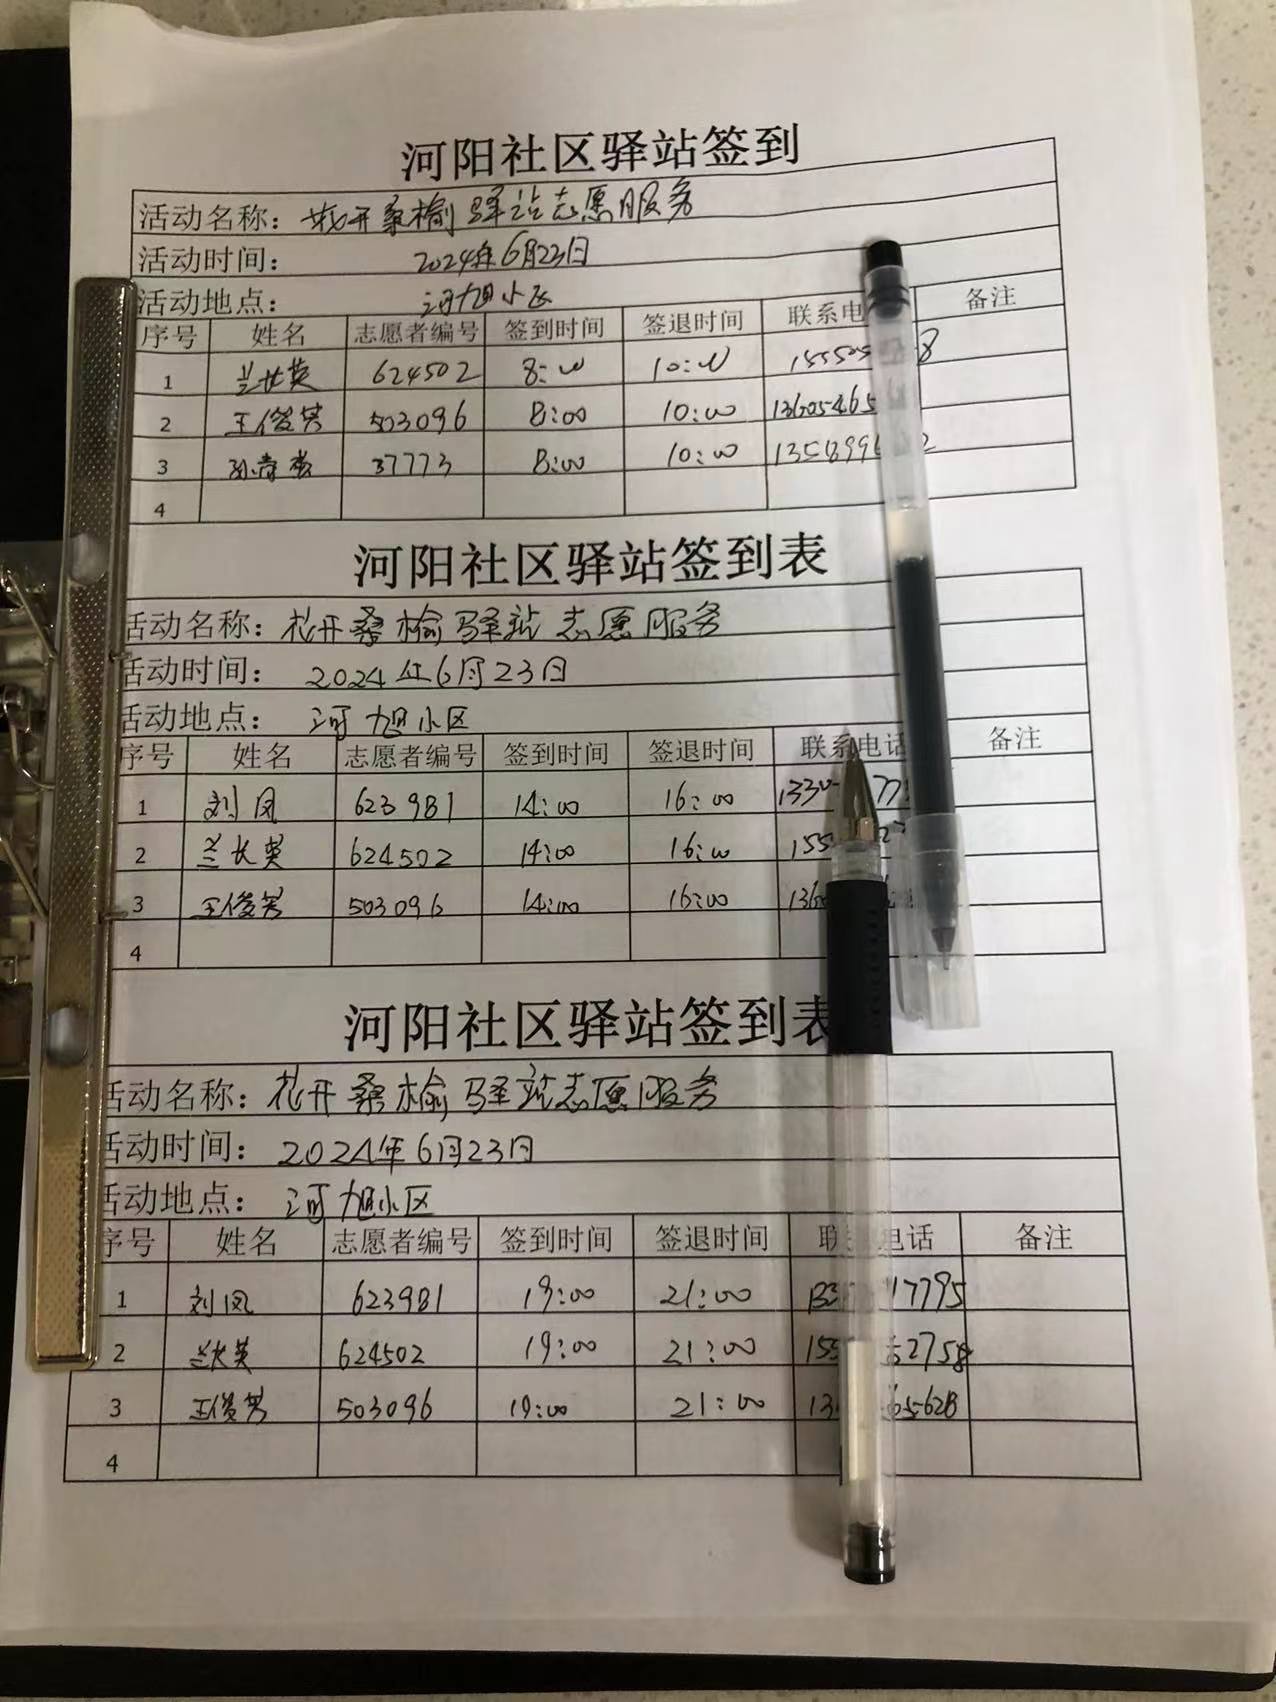 河阳社区驿站签到
活动名称：花开桑榆驿站志愿服务
活动时间： 2024年6月23日
活动地点： 河旭小区
序号 姓名 志愿者编号 签到时间 签退时间 联系电 备注
1 兰长英 624502 8:00 10:00 155505 8
2 王俊芳 503096 8:00 10:00 13605465
3 37773 8:00 10:00 1358996 2
4
河阳社区驿站签到表
活动名称：花开桑榆驿站志愿服务
活动时间： 2024年6月23日
活动地点： 河旭小区
序号 姓名 志愿者编号 签到时间 签退时间 联系电话 备注
1 刘凤 623981 14:00 16:00 1330 77
2 兰长英 624502 14:00 16:00 155 27
3 王俊芳 503096 14:00 16:00 136
4
河阳社区驿站签到表
活动名称：花开桑榆驿站志愿服务
活动时间： 2024年6月23日
活动地点： 河旭小区
序号 姓名 志愿者编号 签到时间 签退时间 联 电话 备注
1 刘凤 623981 19:00 21:00 133 17795
2 兰长英 624502 19:00 21:00 155 52758
3 王俊芳 503096 19:00 21:00 13 65628
4